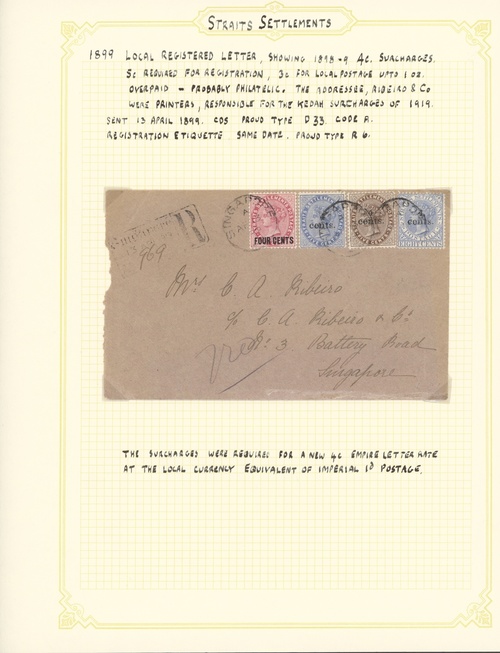 STRAITS SETTLEMENTS
1899 LOCAL REGISTERED LETTER, SHOWING 1898-9 4C. SURCHARGES.
5c REQUIRED FOR REGISTRATION, 3c FOR LOCAL POSTAGE UPTO 1 OZ.
OVERPAID - PROBABLY PHILATELIC. THE ADDRESSEE, RIBEIRO & Co
WERE PRINTERS, RESPONSIBLE FOR THE KEDAH SURCHARGES OF 1919.
SENT 13 APRIL 1899. CDS PROUD TYPE D33. CODE A.
REGISTRATION ETIQUETTE SAME DATE. PROUD TYPE R6.
R
969
FOUR CENTS
cents.
cents.
cents.
EIGHT CENTS
Mr C. A. Ribeiro
c/o C. A. Ribeiro & Co
No 3 Battery Road
Singapore
THE SURCHARGES WERE REQUIRED FOR A NEW 4c EMPIRE LETTER RATE
AT THE LOCAL CURRENCY EQUIVALENT OF IMPERIAL 1d POSTAGE.